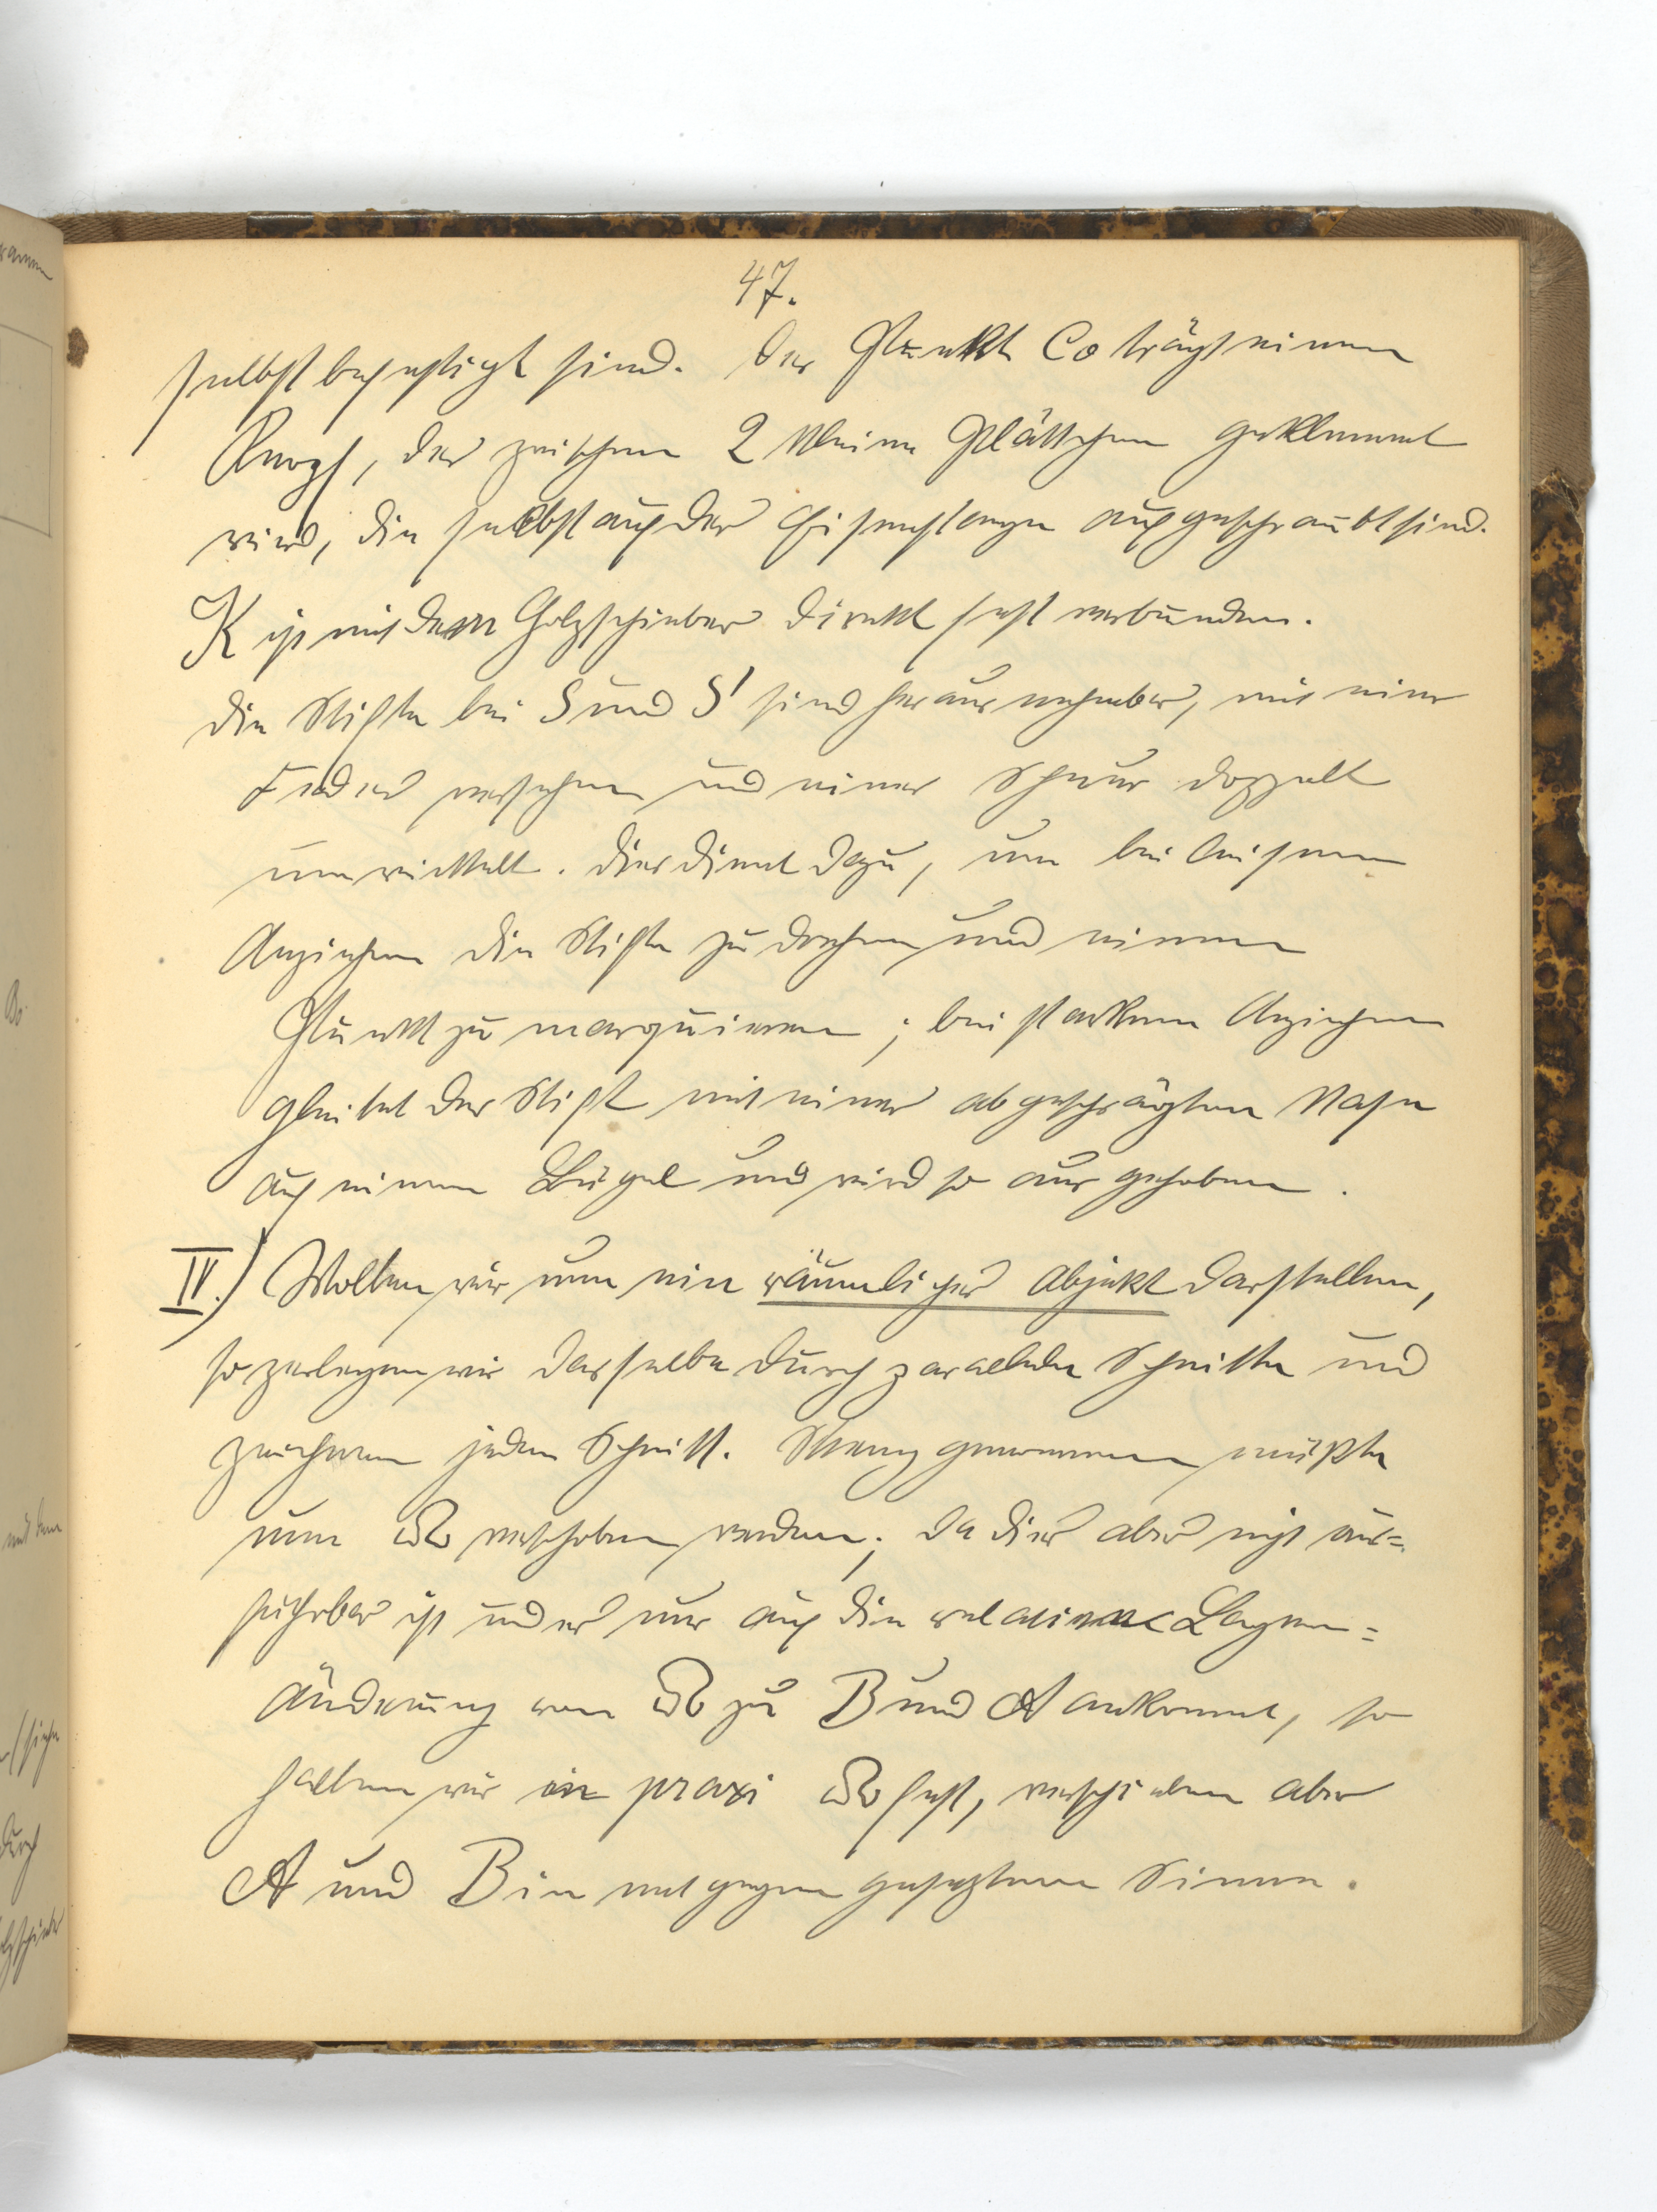 47.
selbst befestigt sind. Der Punkt Co trägt einen
Knopf, der zwischen 2 kleine Plättchen geklemmt
wird, die selbst auf der Eisenstange aufgeschraubt sind.
K ist mit dem Holzschieber direkt fest verbunden.
Die Stifte bei S und S' sind herausnehmbar, mit einer
Feder versehen und einer Schnur doppelt
umwickelt. Dies dient dazu, um bei leisem
Anziehen die Stifte zu drehen und einen
Punkt zu marquieren; bei starkem Anziehen
gleitet der Stift mit einer abgeschrägten Nase
auf einem Bügel und wird so ausgehoben.
IV.) Wollen wir nun ein räumliches Objekt darstellen,
so zerlegen wir dasselbe durch parallele Schnitte und
zeichnen jeden Schnitt. Streng genommen müßte
nun verschoben werden; da dies aber nicht aus=
führbar ist und es nur auf die relative Lagen=
änderung von zu B und A ankommt, so
halten wir in praxi fest, verschieben aber
A und B in entgegengesetztem Sinne.